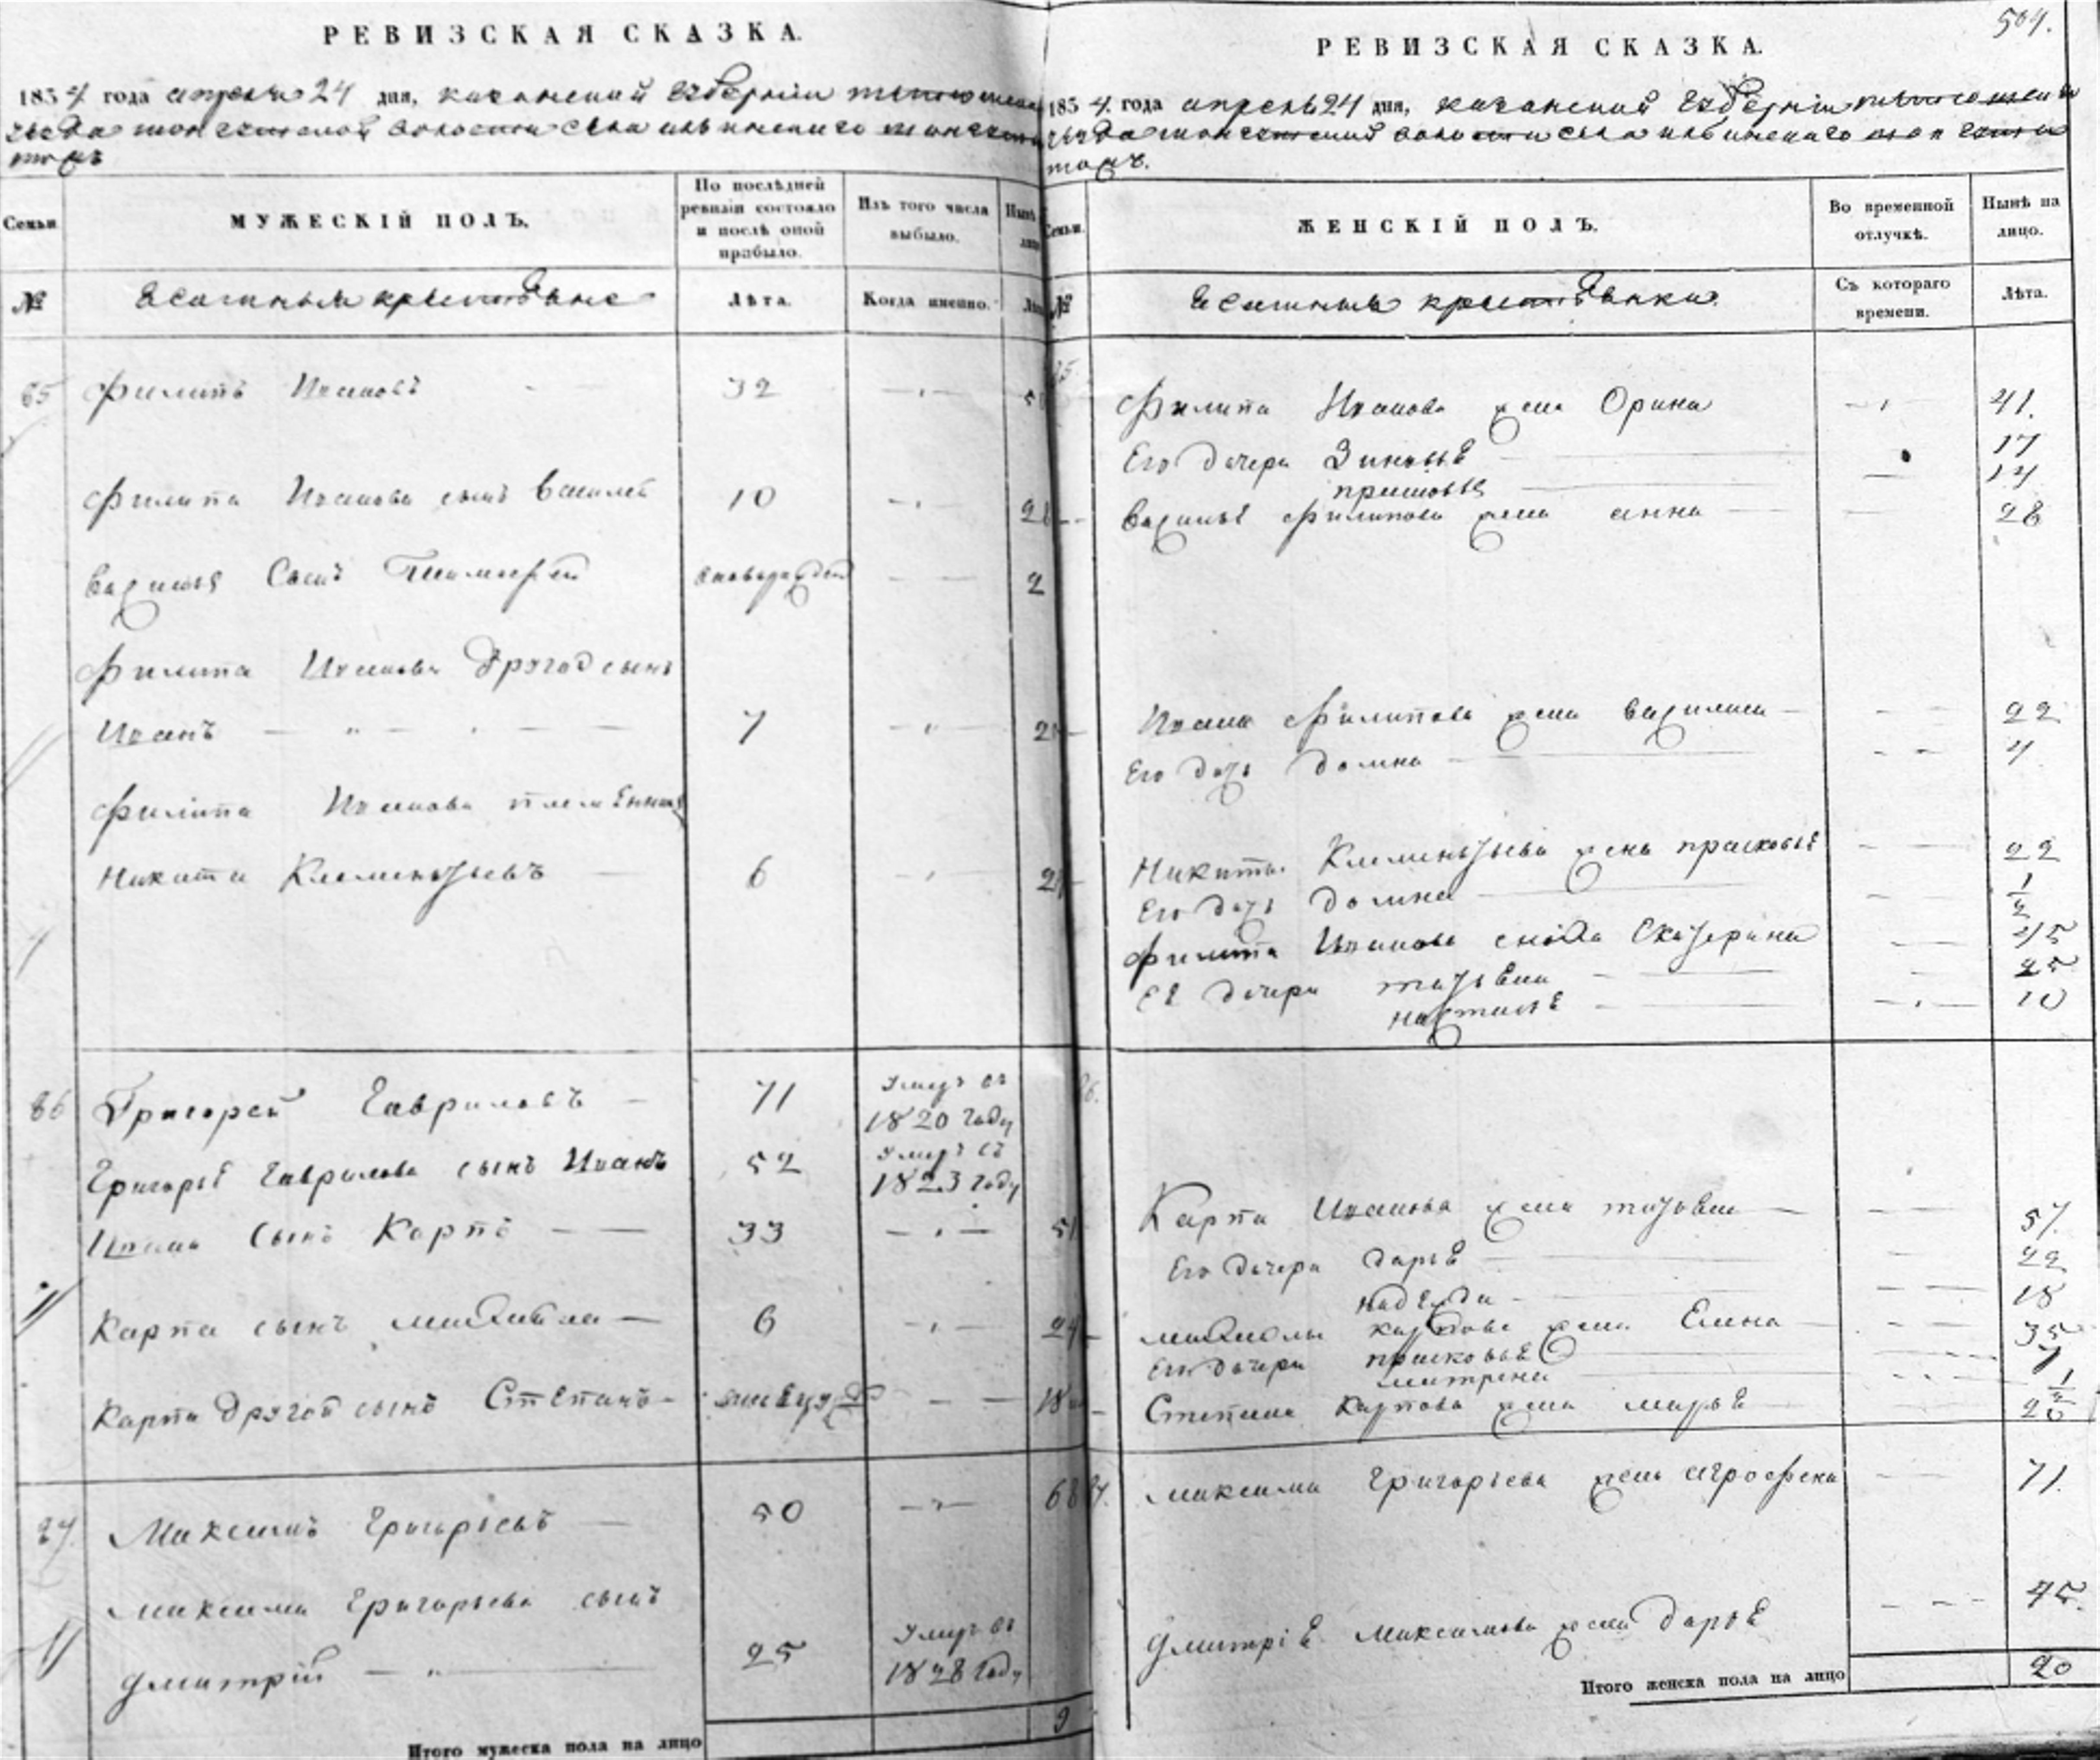 РЕВИЗСКАЯ СКАЗКА.
183 4 года апреля 24 дня, казанской губернии
уезда волости села ильинского
тожъ
Семьи.
МУЖЕСКІЙ ПОЛЪ.
По послѣдней ревизіи состояло и послѣ оной прибыло.
Изъ того числа выбыло.
Нынѣ
№
Ясашныя крестьяне
Лѣта.
Когда именно.
65 Филипъ Ивановъ 32
Филипа Иванова сынъ Василей 10
Василья Сынъ Тимофей 2
Филипа Иванова другой сынъ
Иванъ 7
Филипа Иванова племянникъ
Никита Клементьевъ 6
66 Григорей Гавриловъ 71 Умеръ въ 1820 году
Григорья Гаврилова сынъ Иванъ 52 Умеръ въ 1823 году
Ивана Сынъ Карпъ 33 51
Карпа сынъ 6 24
Карпа другой сынъ Степанъ 18
67. Максимъ Григорьевъ 50 68
Максима Григорьева сынъ
Дмитрій 25 Умеръ въ 1828 году
Итого мужеска пола на лицо 9
504.
РЕВИЗСКАЯ СКАЗКА.
183 4. года апреля 24 дня, казанской губерніи
уезда волости села ильинского
тожъ.
Семьи.
ЖЕНСКІЙ ПОЛЪ.
Во временной отлучкѣ.
Нынѣ на лицо.
№
Ясашныя крестьянки.
Съ котораго времени.
Лѣта.
Филипа Иванова жена Орина 41.
Его дочери Зиновья 17
14
Василья Филипова жена анна 28
Ивана Филипова жена василиса 22
Его дочь домна 4
Никиты Клементьева жена прасковья 22
Его дочь домна 1/2
Филипа Иванова сноха Екатерина 45
Её дочери татьяна 25
настасья 10
Карпа Иванова жена татьяна 57.
Его дочери дарья 22
надежда 18
карпова жена Елена 35
Его дочери прасковья 7
матрена 1/2
Степана Карпова жена марья 20
Максима Григорьева жена агрофена 71.
Дмитрія Максимова жена дарья 45.
Итого женска пола на лицо 20